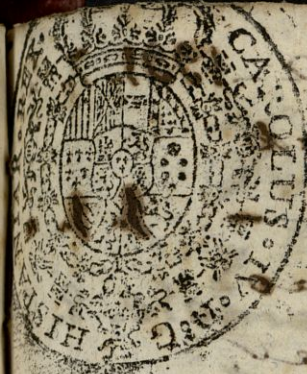 CAROLUS · IV · D · G · HISPANIAR · REX